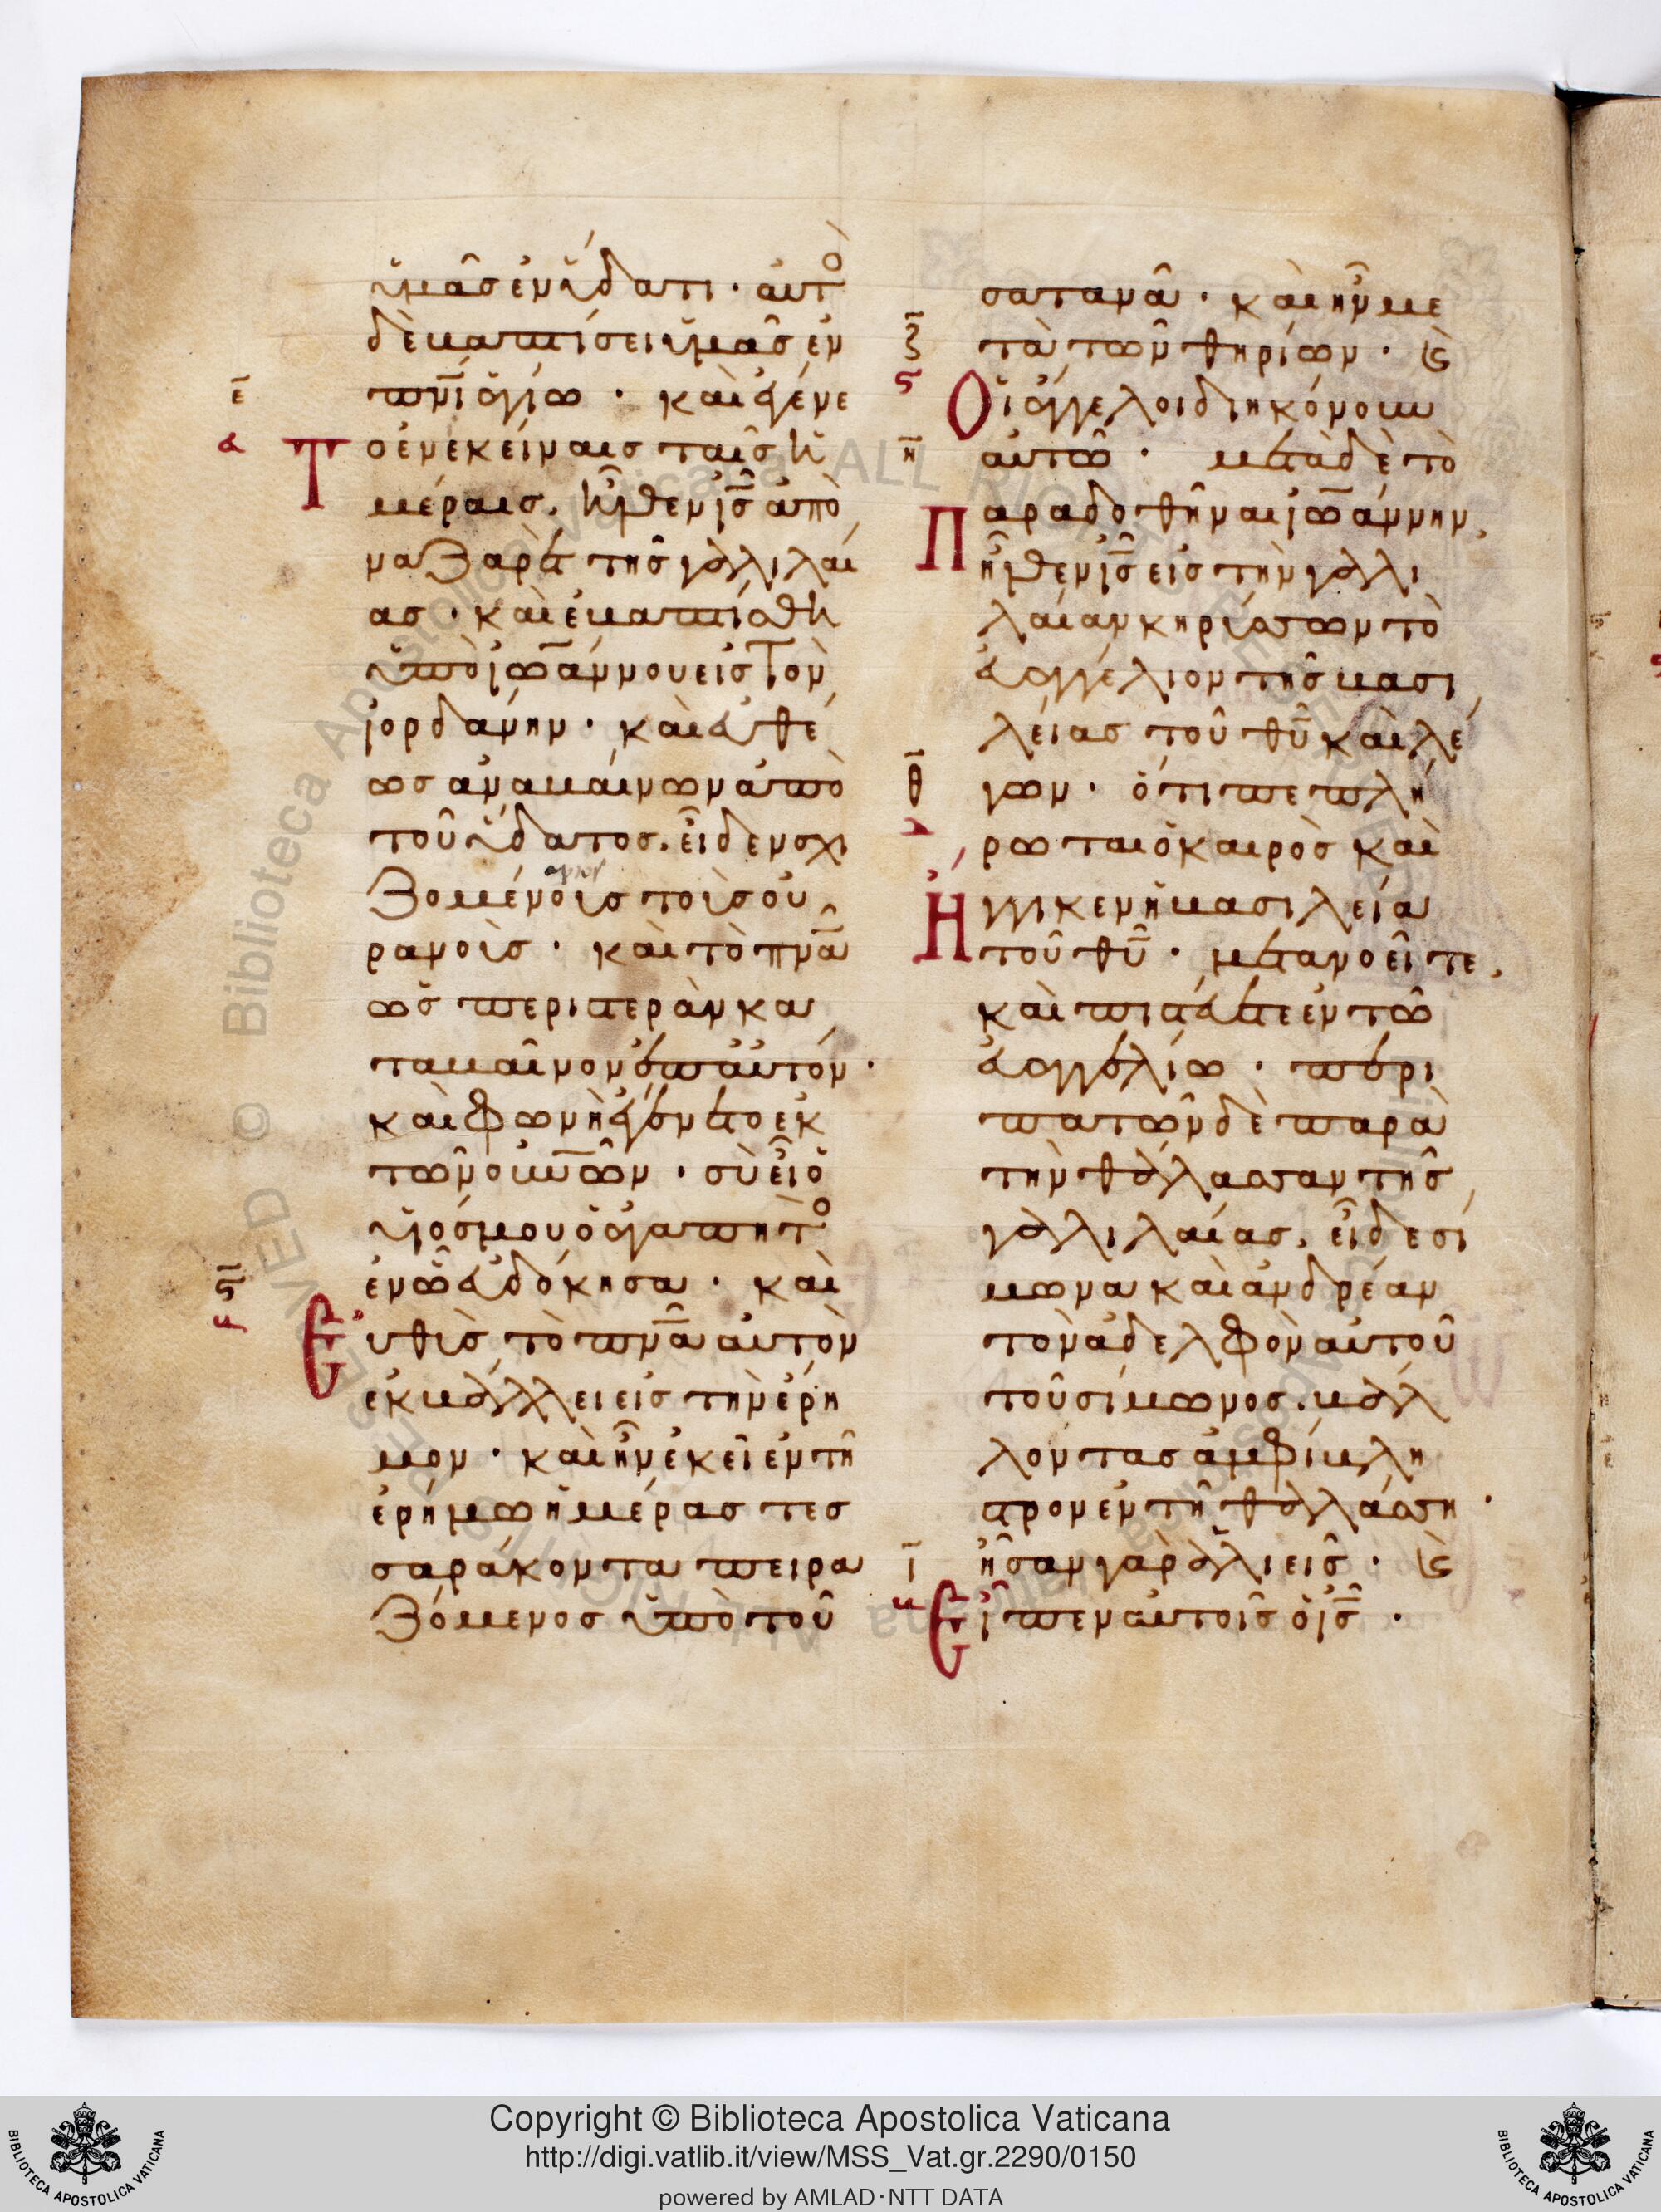 ὑμᾶς ἐν ὕδατι · αὐτὸ
δὲ βαπτίσει ὑμᾶς ἐν
πνῒ ἁγίω · καὶ ἐγένε
ε
α
Τοἐν ἐκείναις ταῖς ἡ
μέραις. ἦλθεν ις ἀπὸ
ναζαρὲτ τῆς γαλιλαί
ας · καὶ ἐβαπτίσθη
ὑπὸ ιωάννου εἰς τὸν
ἰορδάνην · καὶ εὐθέ
ως ἀναβαίνων ἀπὸ
τοῦ ὕδατος. εἶδεν σχι
ζομένοις τοῖς οὐ
ρανοῖς · καὶ τὸ πνα
ὡς περιστερὰν κα
ταβαῖνον ἐπ αὐτόν ·
καὶ φωνὴ ἐγένετο ἐκ
τῶν οὐνῶν · σὺ εἶ ὁ
υἱός μου ὁ ἀγαπητὸ
ἐν ὧ εὐδόκησα · καὶ
ς
Εὐθὺς τὸ πνα αὐτὸν
ἐκβάλλει εἰς τὴν ἔρη
μον · καὶ ἦν ἐκεῖ ἐν τῆ
ἐρήμω ἡμέρας τεσ
σαράκοντα πειρα
ζόμενος ὑπὸ τοῦ
σατανᾶ · καὶ ἦν με
ζ
τὰ τῶν θηρίων · ϗ
ς
Οἱ ἄγγελοι διηκόνουν
η
αὐτῶ · μετὰ δὲ τὸ
Παραδοθῆναι ιωάννην,
ἦλθεν ις εἰς τὴν γαλι
λαίαν κηρύσσων τὸ
εὐαγγέλιον τῆς βασι
λείας τοῦ θυ καὶ λέ
θ
γων · ὅτι πεπλή
ρωται ὁ καιρὸς καὶ
Ἤγγικεν ἡ βασιλεία
τοῦ θυ · μετανοεῖτε,
καὶ πιστεύετε ἐν τῶ
εὐαγγελίω · περι
πατῶν δὲ παρὰ
τὴν θάλασσαν τῆς
γαλιλαίας, εἶδε σί
μωνα καὶ ἀνδρέαν
τὸν ἀδελφὸν αὐτοῦ
τοῦ σίμωνος. βάλ
λοντας ἀμφίβλη
στρον ἐν τῆ θαλάσση ·
ι
ἦσαν γὰρ ἁλιεῖς · ϗ
Εἶπεν αὐτοῖς ὁ ις ·
Copyright © Biblioteca Apostolica Vaticana
http://digi.vatlib.it/view/MSS_Vat.gr.2290/0150
powered by AMLAD·NTT DATA
BIBLIOTECA APOSTOLICA VATICANA
BIBLIOTECA APOSTOLICA VATICANA